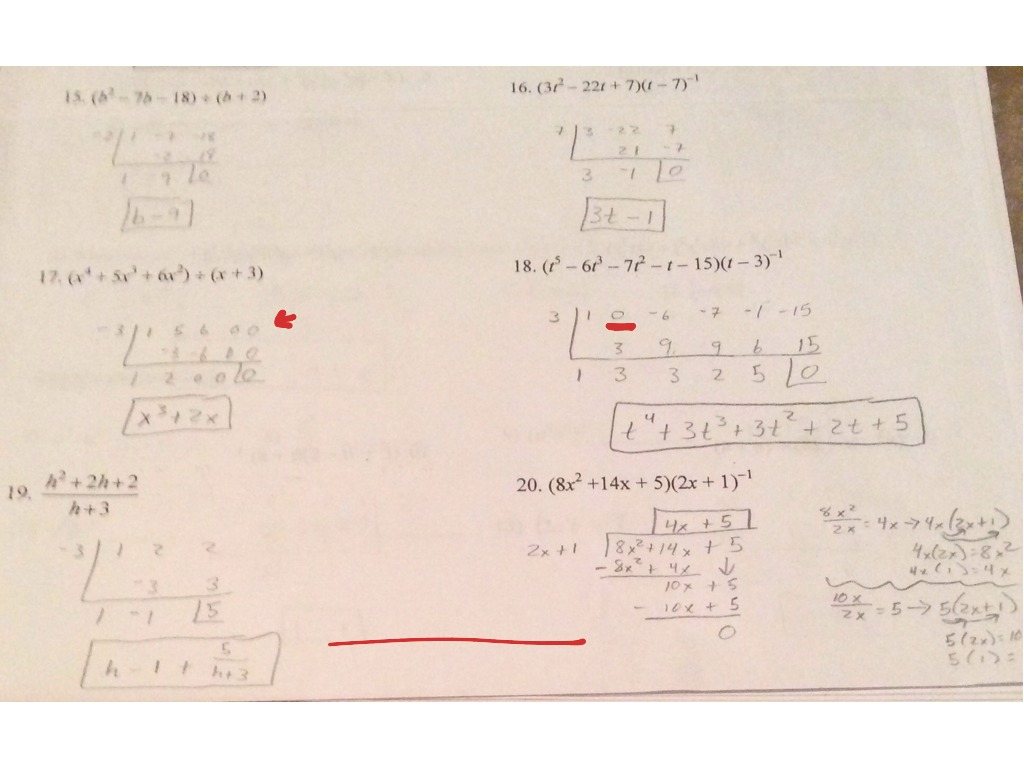 15. (b² − 7b − 18) ÷ (b + 2)
-2 | 1 -7 -18
-2 18
1 -9 | 0
b - 9
16. (3t² − 22t + 7)(t − 7)⁻¹
7 | 3 -22 7
21 -7
3 -1 | 0
3t - 1
17. (x⁴ + 5x³ + 6x²) ÷ (x + 3)
-3 | 1 5 6 0 0
-3 -6 0 0
1 2 0 0 | 0
x³ + 2x
18. (t⁵ − 6t³ − 7t² − t − 15)(t − 3)⁻¹
3 | 1 0 -6 -7 -1 -15
3 9 9 6 15
1 3 3 2 5 | 0
t⁴ + 3t³ + 3t² + 2t + 5
19. (h² + 2h + 2)/(h + 3)
-3 | 1 2 2
-3 3
1 -1 | 5
h - 1 + 5/(h+3)
20. (8x² +14x + 5)(2x + 1)⁻¹
4x + 5
2x+1 | 8x²+14x + 5
- 8x² + 4x ↓
10x + 5
- 10x + 5
0
8x²/2x = 4x → 4x(2x+1)
4x(2x) = 8x²
4x(1) = 4x
10x/2x = 5 → 5(2x+1)
5(2x) = 10
5(1) =